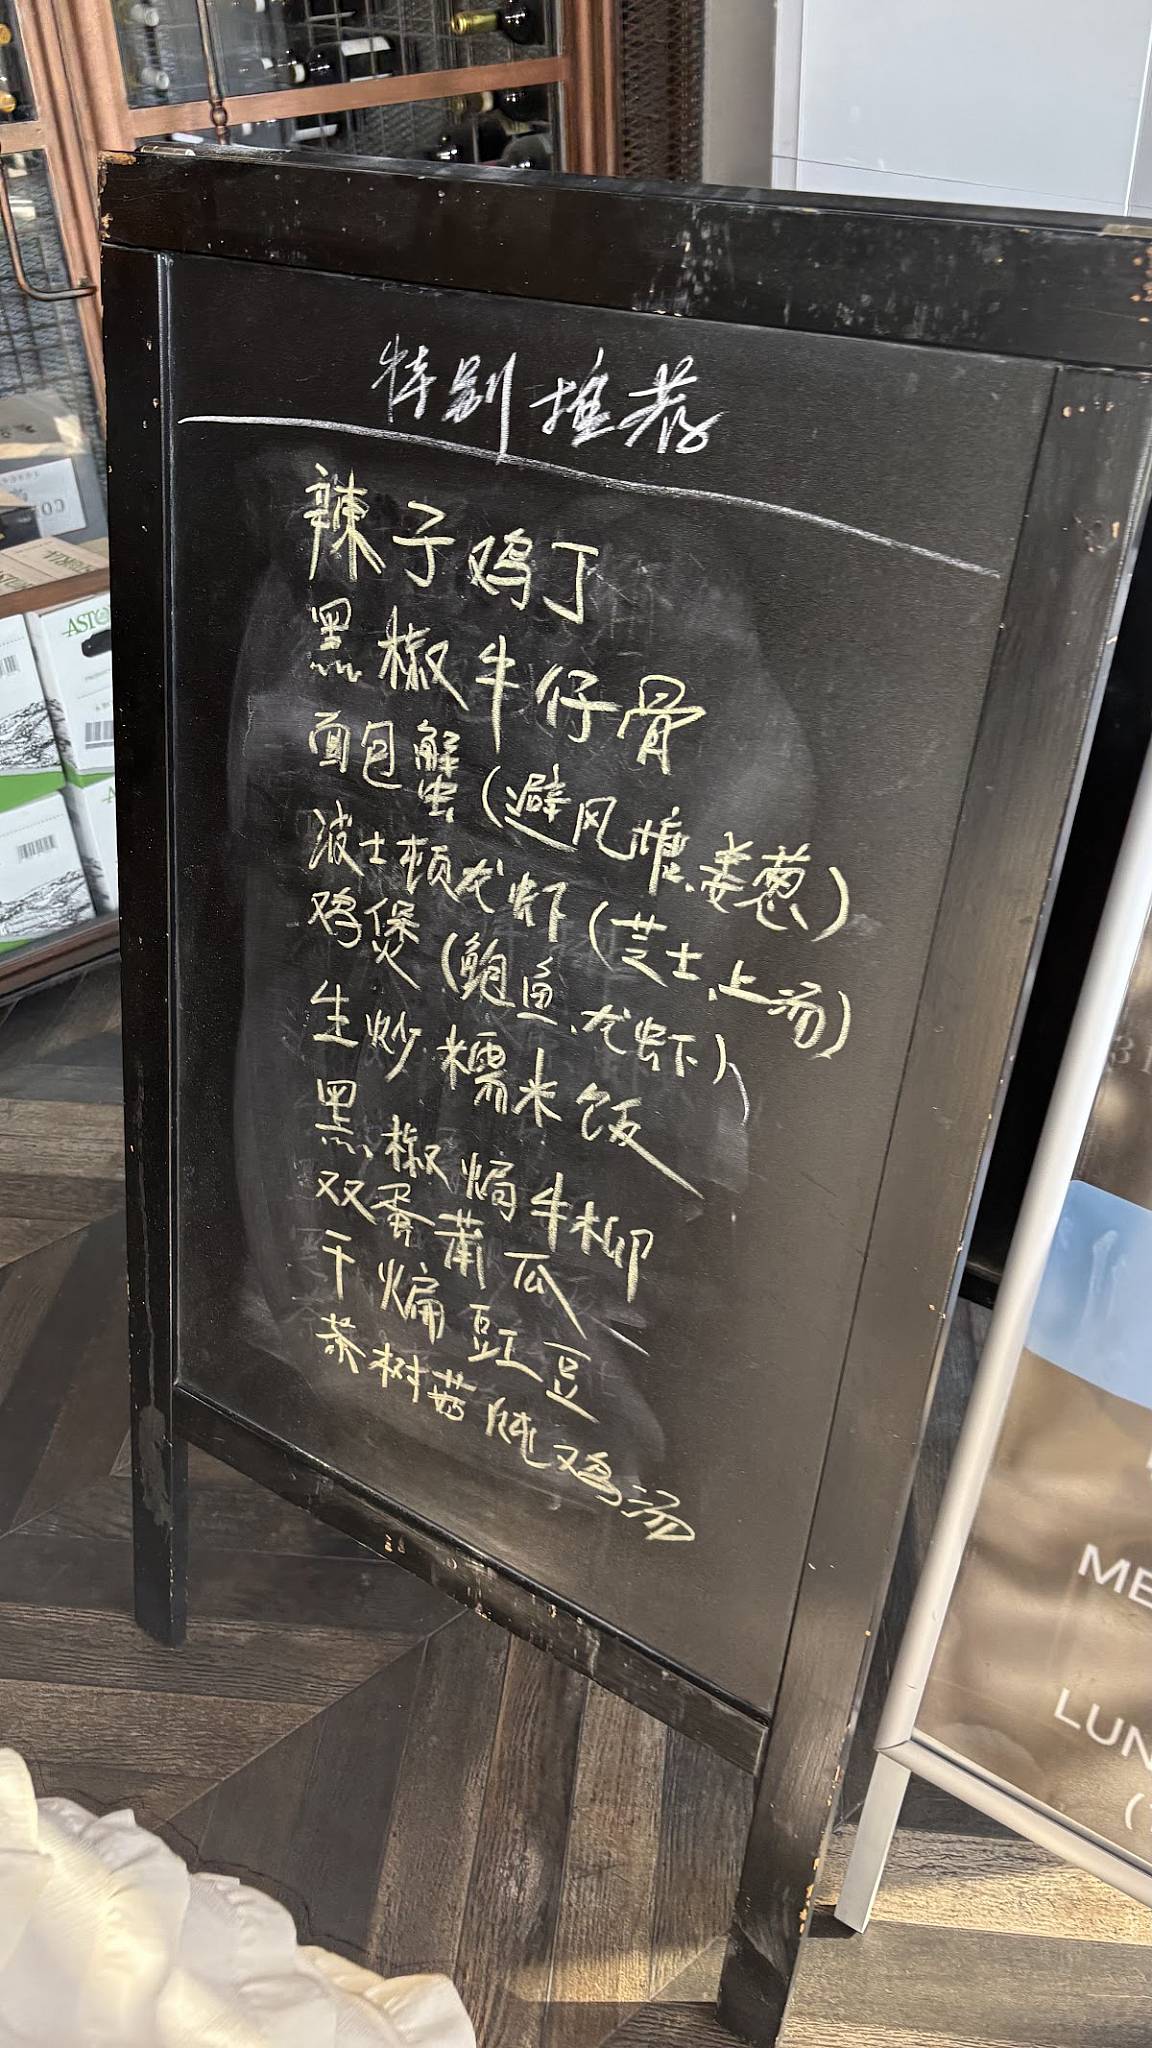 特别推荐
辣子鸡丁
黑椒牛仔骨
面包蟹(避风塘、姜葱)
波士顿龙虾(芝士、上汤)
鸡煲(鲍鱼、龙虾)
生炒糯米饭
黑椒焗牛柳
双蛋莆瓜
干煸豇豆
茶树菇炖鸡汤
AST
ME
LUN